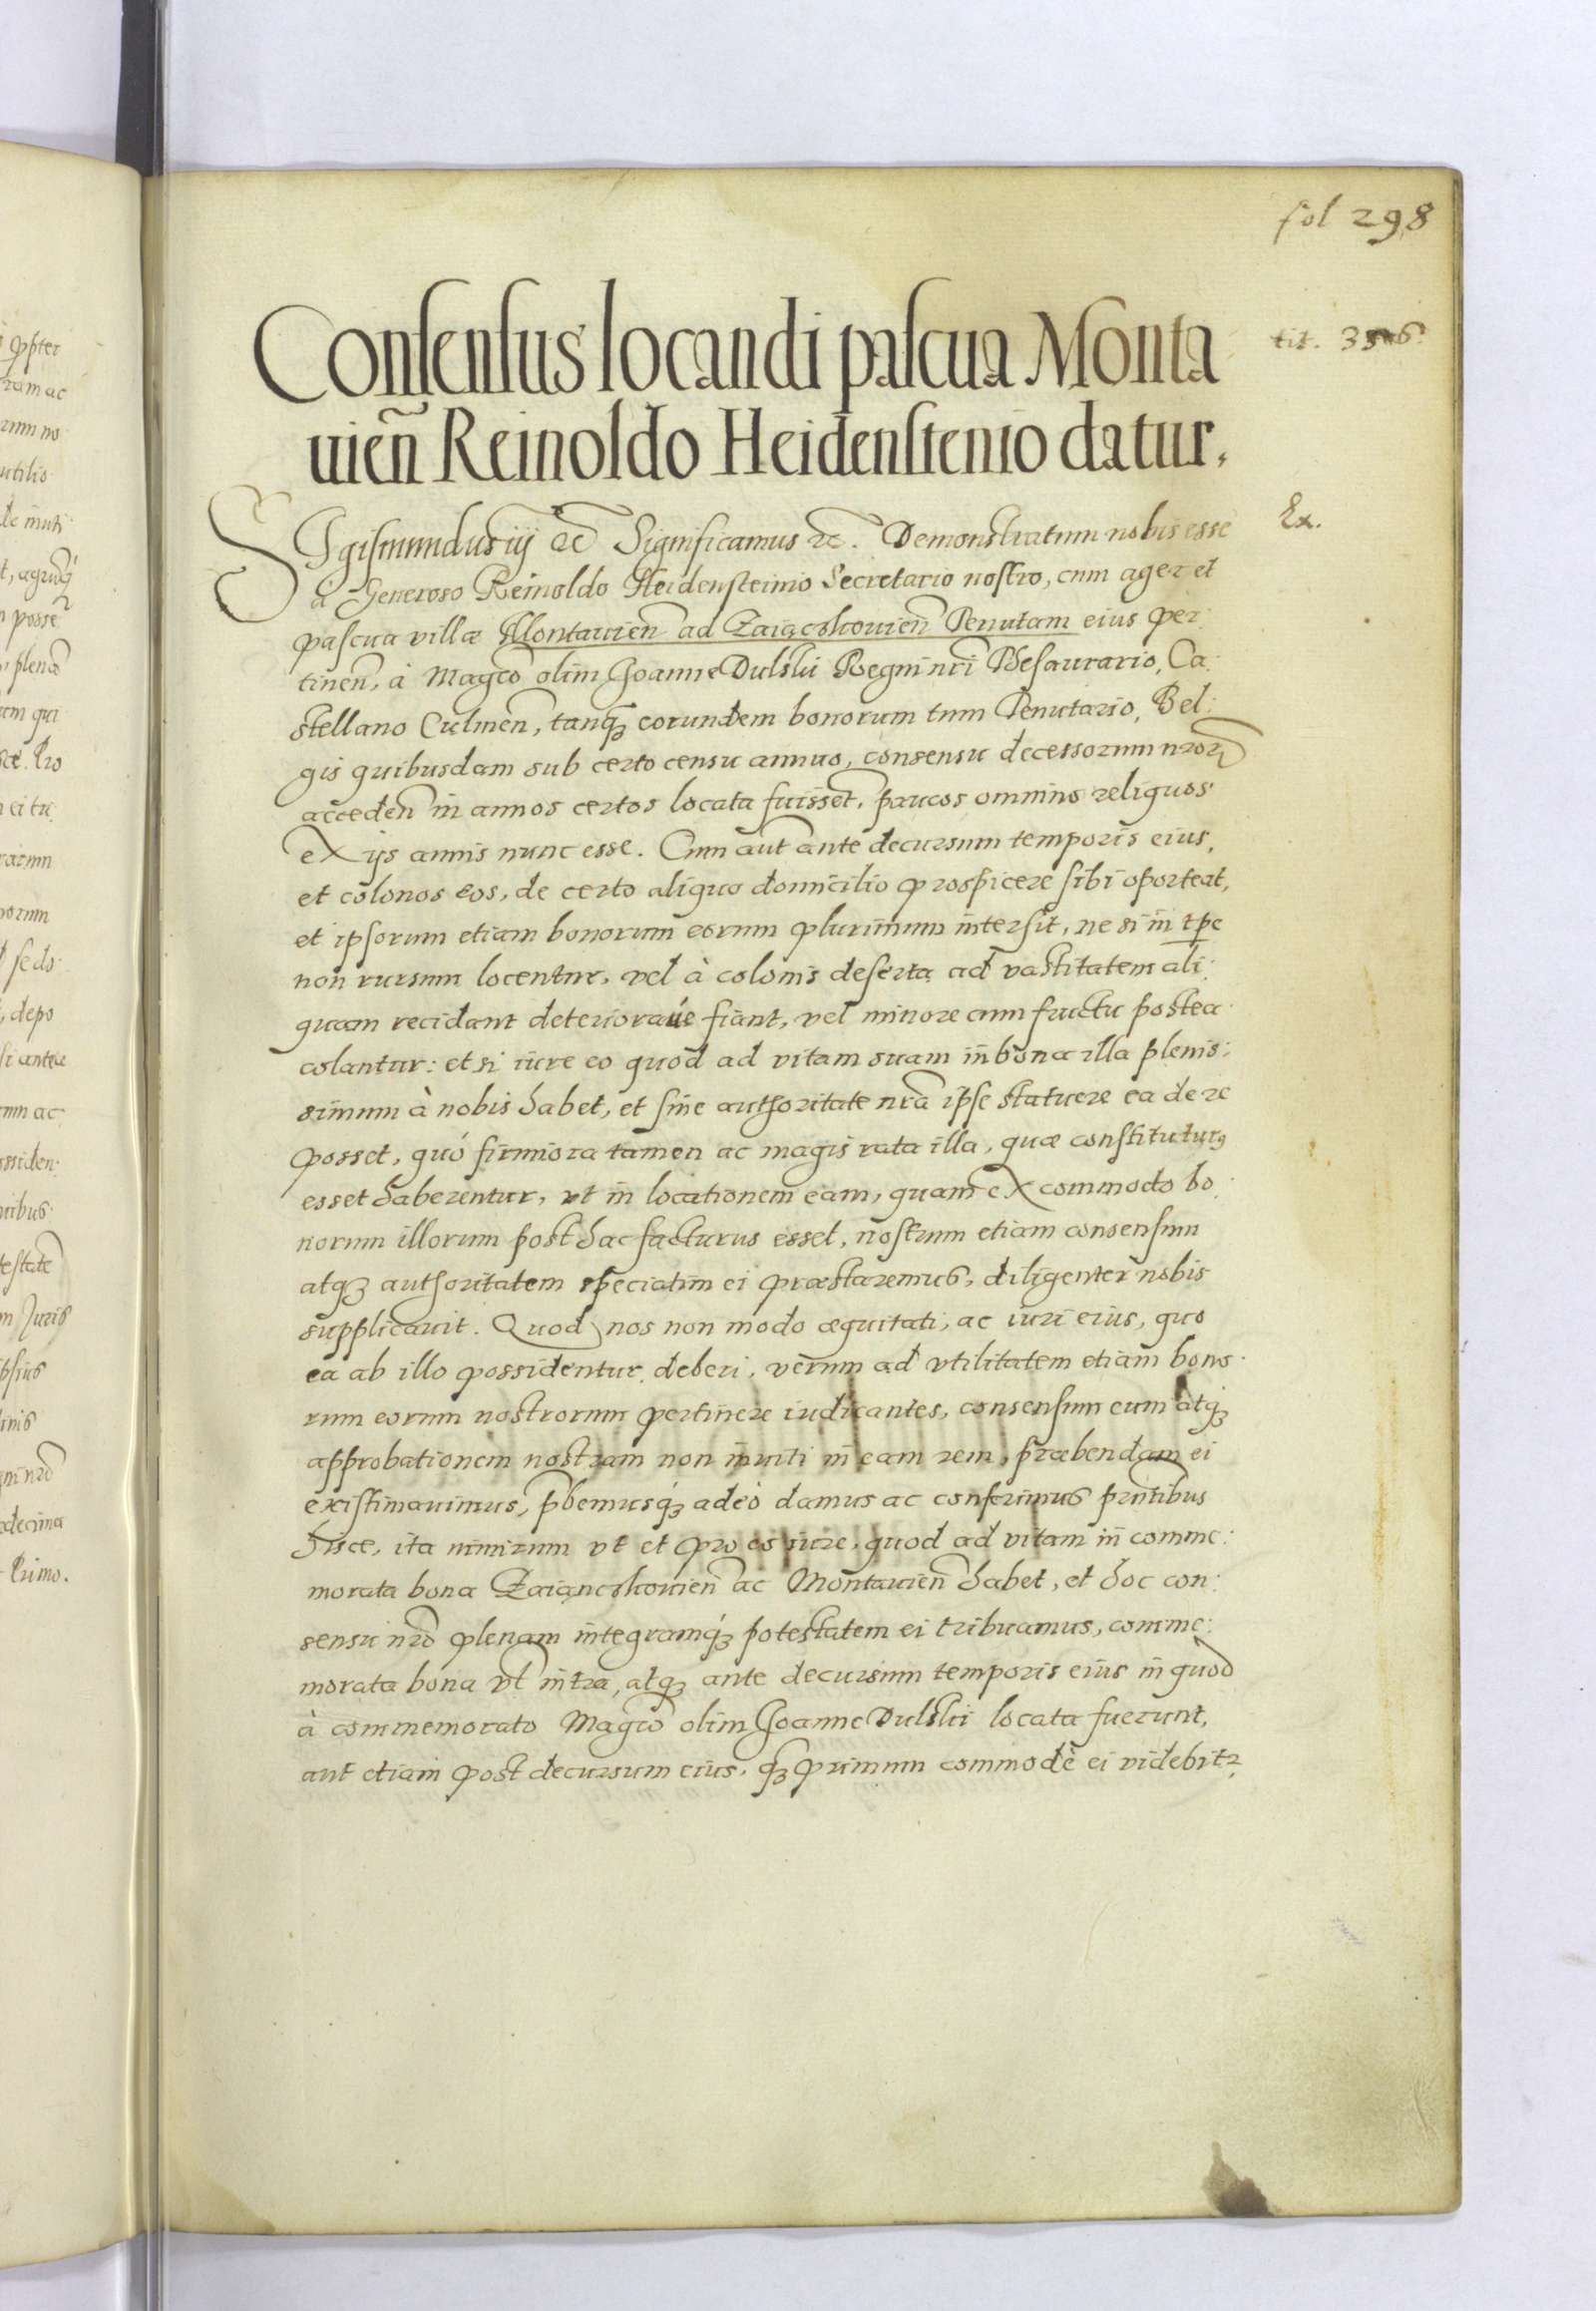 fol 298
Consensus locandi pascua Monta
tit. 3
uien̄ Reinoldo Heidenstenio datur.
Ex.
Sigismundus iij etc̄ Significamus etc. Demonstratum nobis esse
à Generoso Reinoldo Heidensteinio Secretario nostro, cum ager et
pascua villæ Montauien̄ ad Zaiączkouien̄ Tenutam eius per:
tinen̄, à Magco olim Joanne Dulski Regni nri Thesaurario, Ca:
stellano Culmen̄, tanqꝫ eorundem bonorum tum Tenutario, Bel:
gis quibusdam sub certo censu annuo, consensu decessorum nrorꝝ
acceden̄ in annos certos locata fuissent, paucos omnino reliquos
ex ijs annis nunc esse. Cum aut ante decursum temporis eius,
et colonos eos, de certo aliquo domicilio prospicere sibi oporteat,
et ipsorum etiam bonorum eorum plurimum intersit, ne si in tpe
non rursum locentur, vel à colonis deserta ad vastitatem ali:
quam recidant deterioraúe fiant, vel minore cum fructu postea
colantur: et si iure eo quod ad vitam suam in bona illa plenis:
simum à nobis habet, et sine authoritate nra ipse statuere ea de re
posset, quó firmiora tamen ac magis rata illa, quæ constituturꝰ
esset haberentur, vt in locationem eam, quam ex commodo bo:
norum illorum posthac facturus esset, nostrum etiam consensum
atqꝫ authoritatem speciatim ei præstaremus, diligenter nobis
supplicauit. Quod nos non modo æquitati, ac iuri eius, quo
ea ab illo possidentur deberi, verum ad vtilitatem etiam bono:
rum eorum nostrorum pertinere iudicantes, consensum eum atqꝫ
approbationem nostram non inuiti in eam rem, præbendam ei
existimauimus, pbemusqꝫ adeò damus ac conferimus prntibus
hisce, ita nimirum vt et pro eo iure, quod ad vitam in comme:
morata bona Zaiączkouien̄ ac Montauien̄ habet, et hoc con:
sensu nro plenam integramqꝫ potestatem ei tribuamus, comme:
morata bona vt intra, atqꝫ ante decursum temporis eius in quod
à commemorato Magco olim Joanne Dulski locata fuerunt,
aut etiam post decursum eius, qꝫ primum commodè ei videbitr